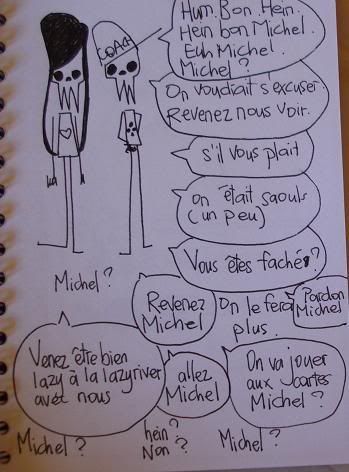 COACH
Hum. Bon. Hein.
Hein bon Michel.
Euh Michel.
Michel ?
On voudrait s'excuser.
Revenez nous voir.
s'il vous plait
on était saouls
(un peu)
Vous êtes faché ?
Michel ?
Revenez
Michel
On le fera
plus.
Pardon
Michel
Venez être bien
lazy à la lazyriver
avec nous
allez
Michel
On va jouer
aux cartes
Michel ?
Michel ?
hein ?
Non ?
Michel ?